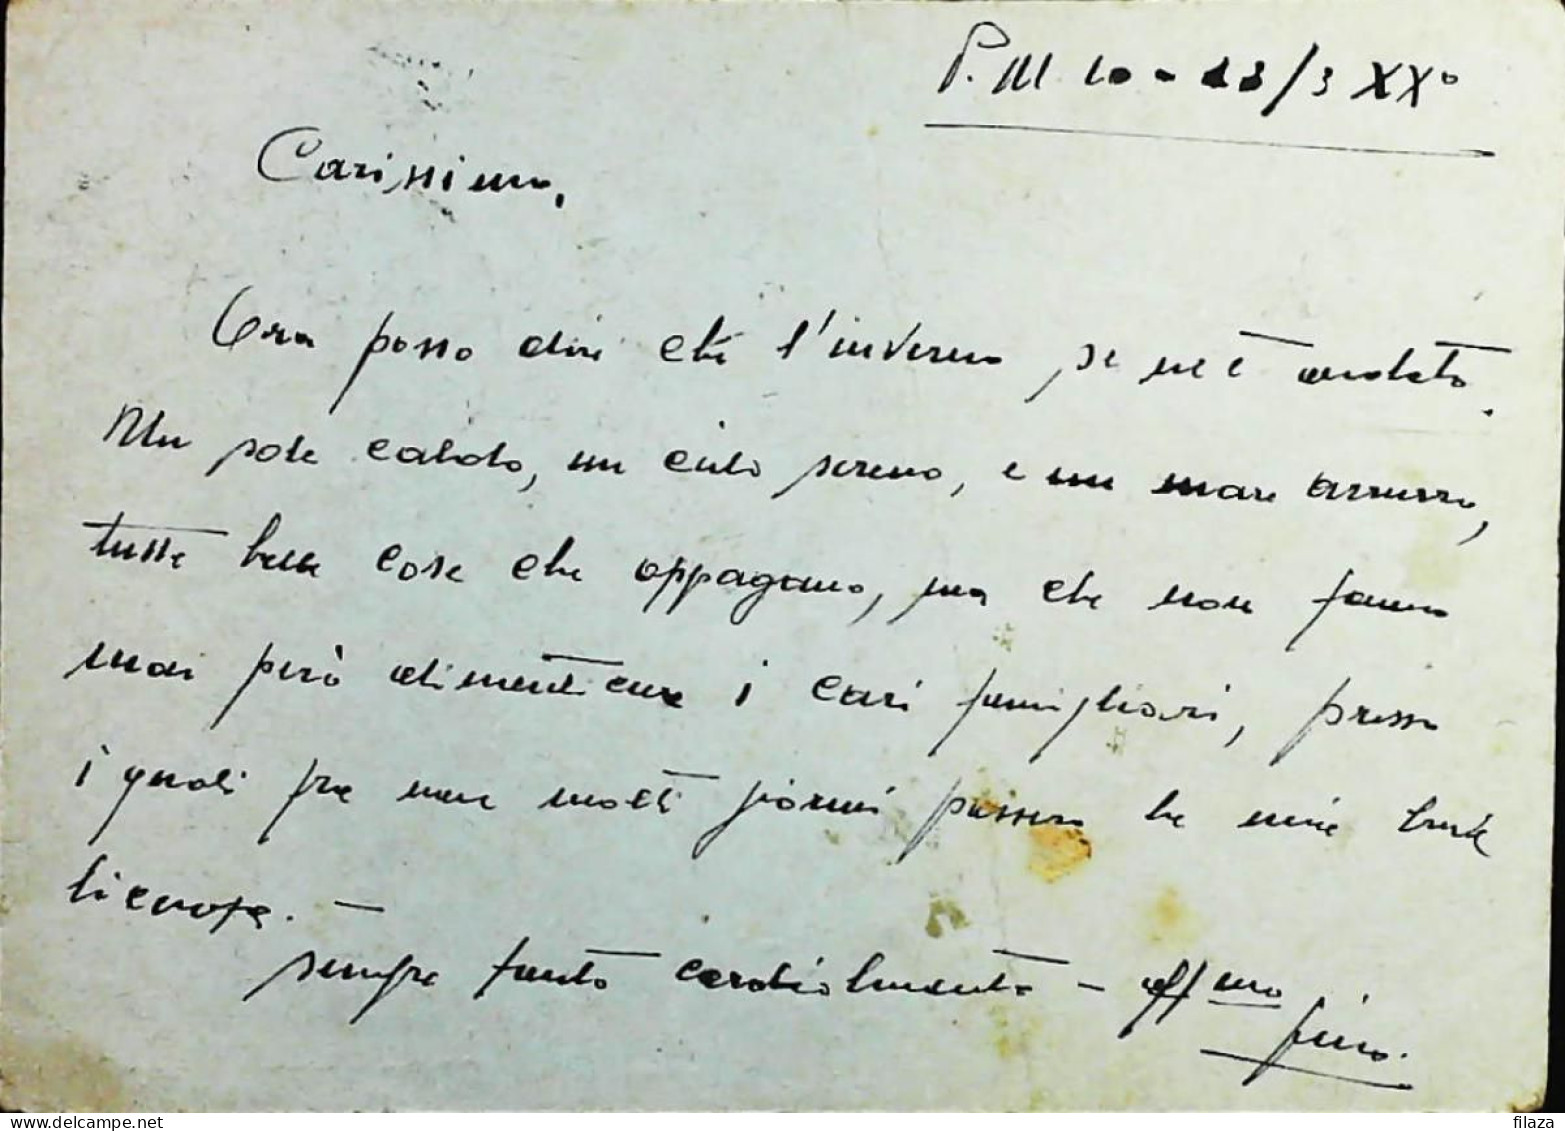 P.M. 10 - 23/3 XX°
Carissimo,
Ora posso dire che l'inverno se ne è andato.
Un sole caldo, un cielo sereno, e un mare azzurro,
tutte belle cose che appagano, ma che non fanno
mai però dimenticare i cari famigliari, presso
i quali fra non molti giorni passerò la mia breve
licenza. —
sempre tanto cordialmente - aff/mo
Pino.
filaza